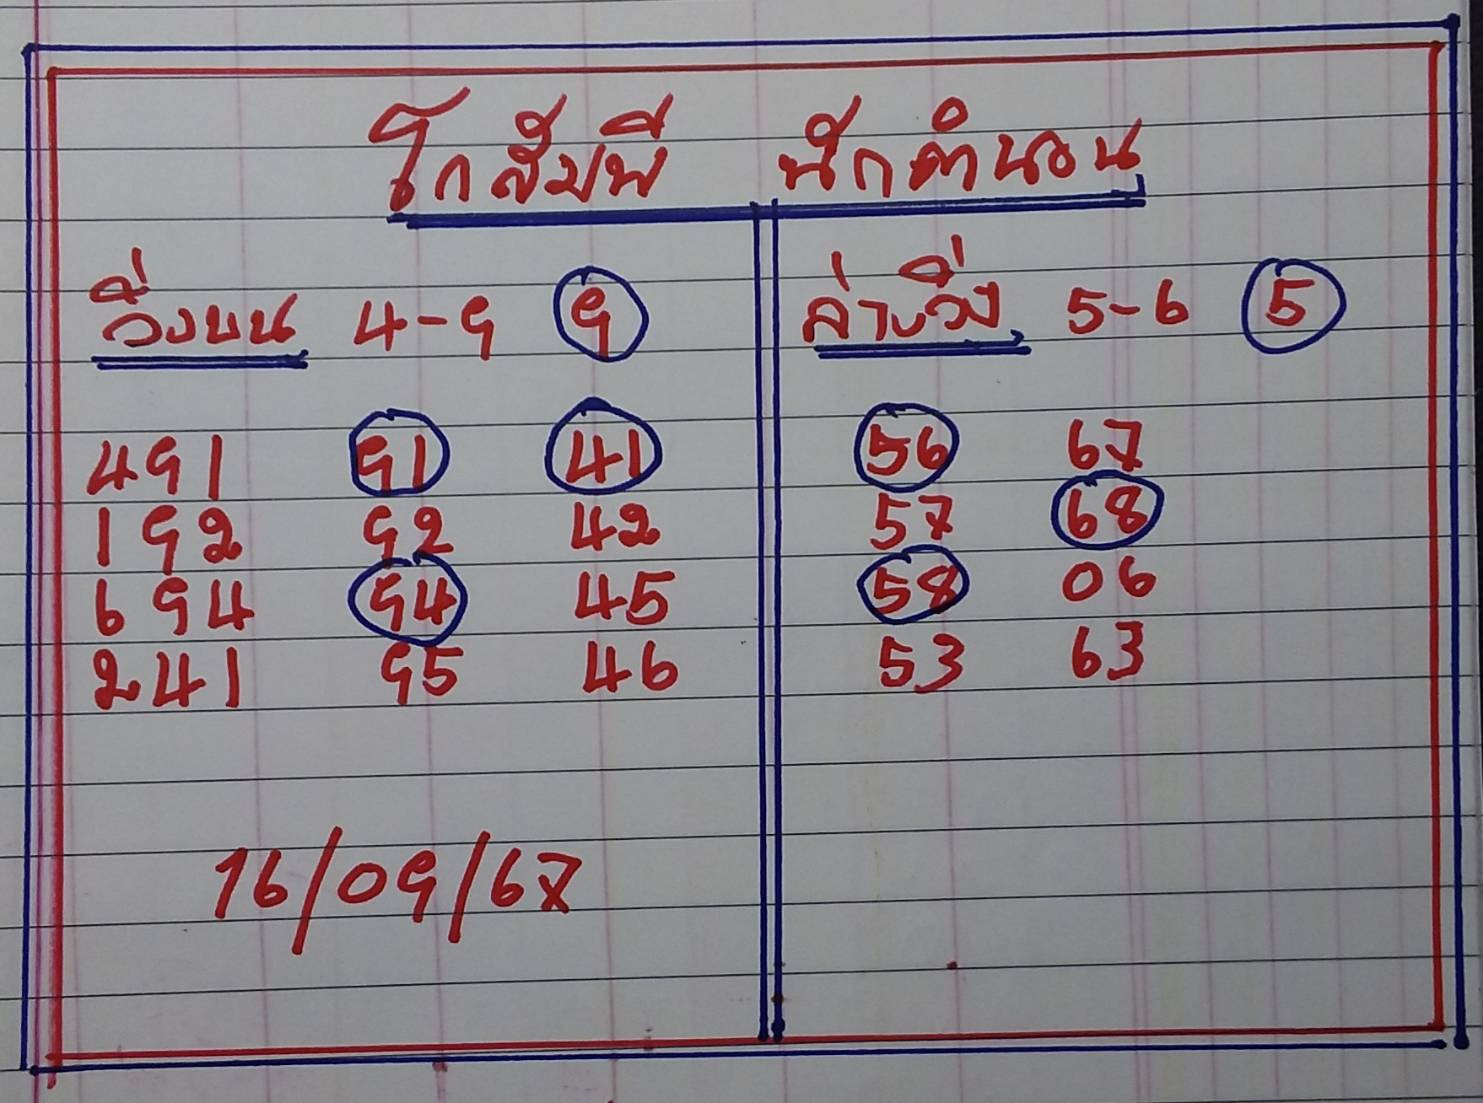 โกสัมพี นักคำนวน
วิ่งบน 4-9 9 ล่างวิ่ง 5-6 5
491 91 41 56 67
192 92 42 57 68
694 94 45 58 06
241 95 46 53 63
16/09/67